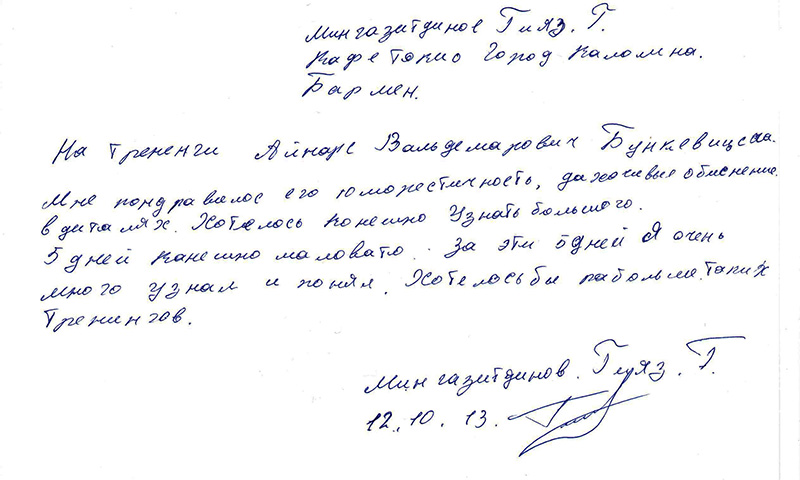 Мингазитдинов Гияз. Г.
Кафе Токио Город Каломна.
Бармен.
На Трененги Айнарс Вальдемарович Бункевицсаа.
Мне пондравелос его юмористичность, даходчивые обиснение
в диталях. Хотелось конешно Узнать большого.
5 дней канешно маловато. За эти 5 дней Я очень
много узнал и понял. Хотелось бы рабольше. таких
Тренингов.
Мингазитдинов. Гияз. Г.
12.10.13.